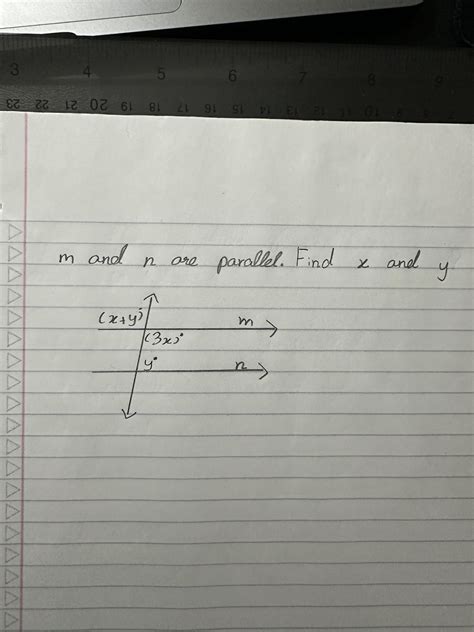 3 4 5 6 7 8 9
23 22 21 20 19 18 17 16 15 14 13 12 11 10
m and n are parallel. Find x and y
(x+y)° m
(3x)°
y° n